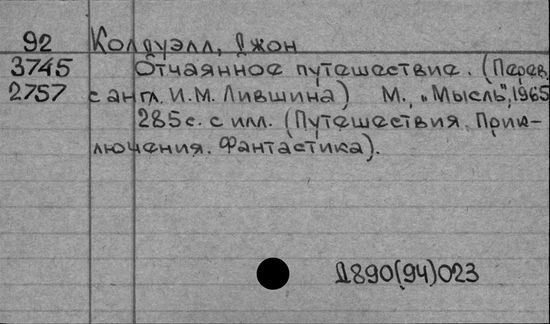 92 Колдуэлл, Джон
3745 Отчаянное путешествие. (Перев.
2757 с англ. И.М. Лившина) М., "Мысль", 1965
285 с. с илл. (Путешествия. Прик-
лючения. Фантастика).
Д890(94)023